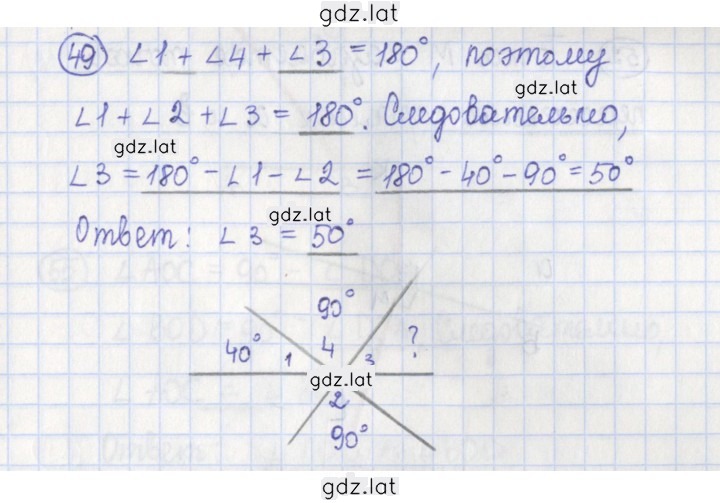 gdz.lat
49 ∠1 + ∠4 + ∠3 = 180°, поэтому
gdz.lat
∠1 + ∠2 + ∠3 = 180°. Следовательно,
gdz.lat
∠3 = 180° - ∠1 - ∠2 = 180° - 40° - 90° = 50°
gdz.lat
Ответ: ∠3 = 50°
90°
40° 1 4 3 ?
gdz.lat
2
90°
gdz.lat